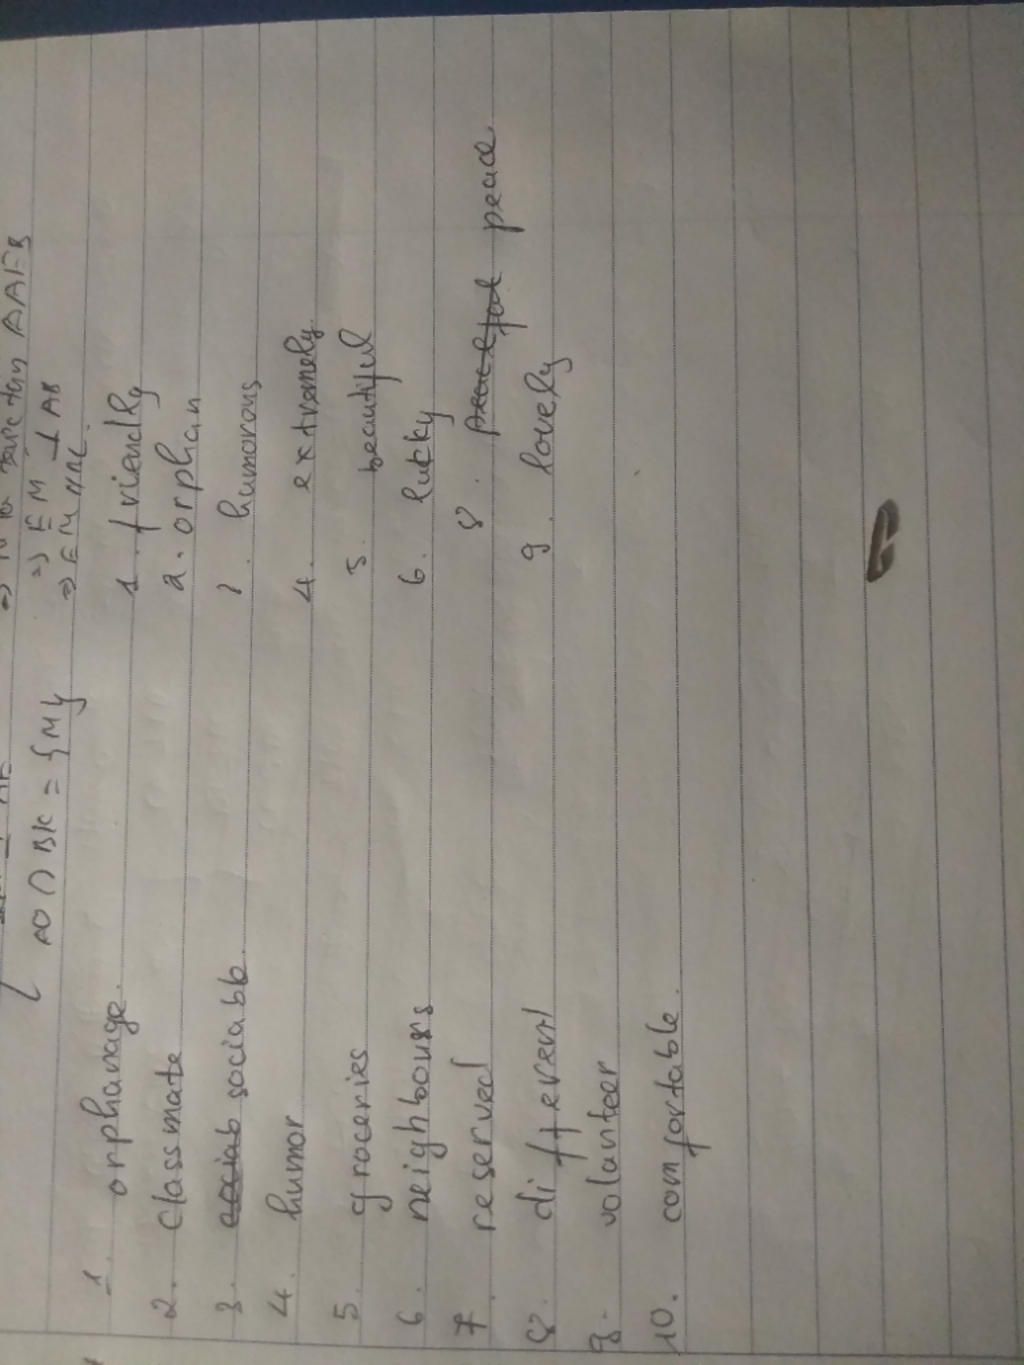 AO ∩ BK = {M}
=> EM ⊥ AB
=> EM //
1. orphanage.
2. classmate
3. sociable.
4. humor
5. groceries
6. neighbours
7. reserved
8. different
9. volanteer
10. comfortable.
1. friendly
2. orphan
3. humorous
4. extremely.
5. beautiful
6. lucky
8. peace
9. lovely